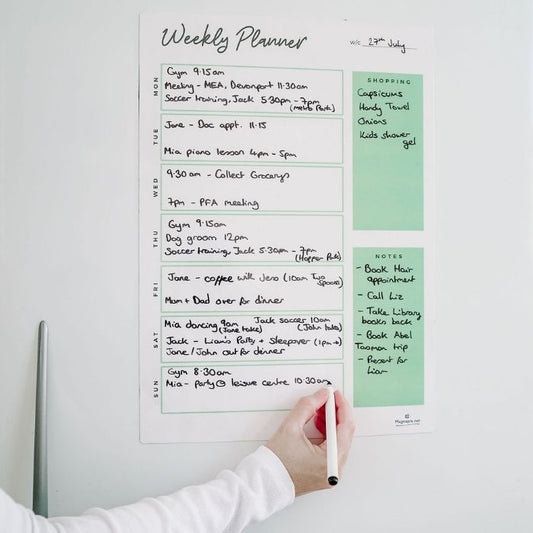 Weekly Planner
w/c 27th July
MON
Gym 9.15am
Meeting - MEA, Devonport 11.30am
Soccer training, Jack 5.30pm - 7pm
(Metro Park)
TUE
Jane - Doc appt. 11.15
Mia piano lesson 4pm - 5pm
WED
9.30am - Collect Grocerys
7pm - PFA meeting
THU
Gym 9.15am
Dog groom 12pm
Soccer training, Jack 5.30am - 7pm
(Hopper Park)
FRI
Jane - coffee with Jens (10am Two
Spoons)
Mum + Dad over for dinner
SAT
Mia dancing 9am
(Jane take)
Jack soccer 10am
(John take)
Jack - Liam's Party + sleepover (1pm→)
Jane/John out for dinner
SUN
Gym 8.30am
Mia - party @ leisure centre 10.30am
SHOPPING
Capsicums
Handy Towel
Onions
Kids shower
gel
NOTES
- Book Hair
appointment
- Call Liz
- Take Library
books back
- Book Abel
Tasman trip
- Present for
Liam
Magnapix.net